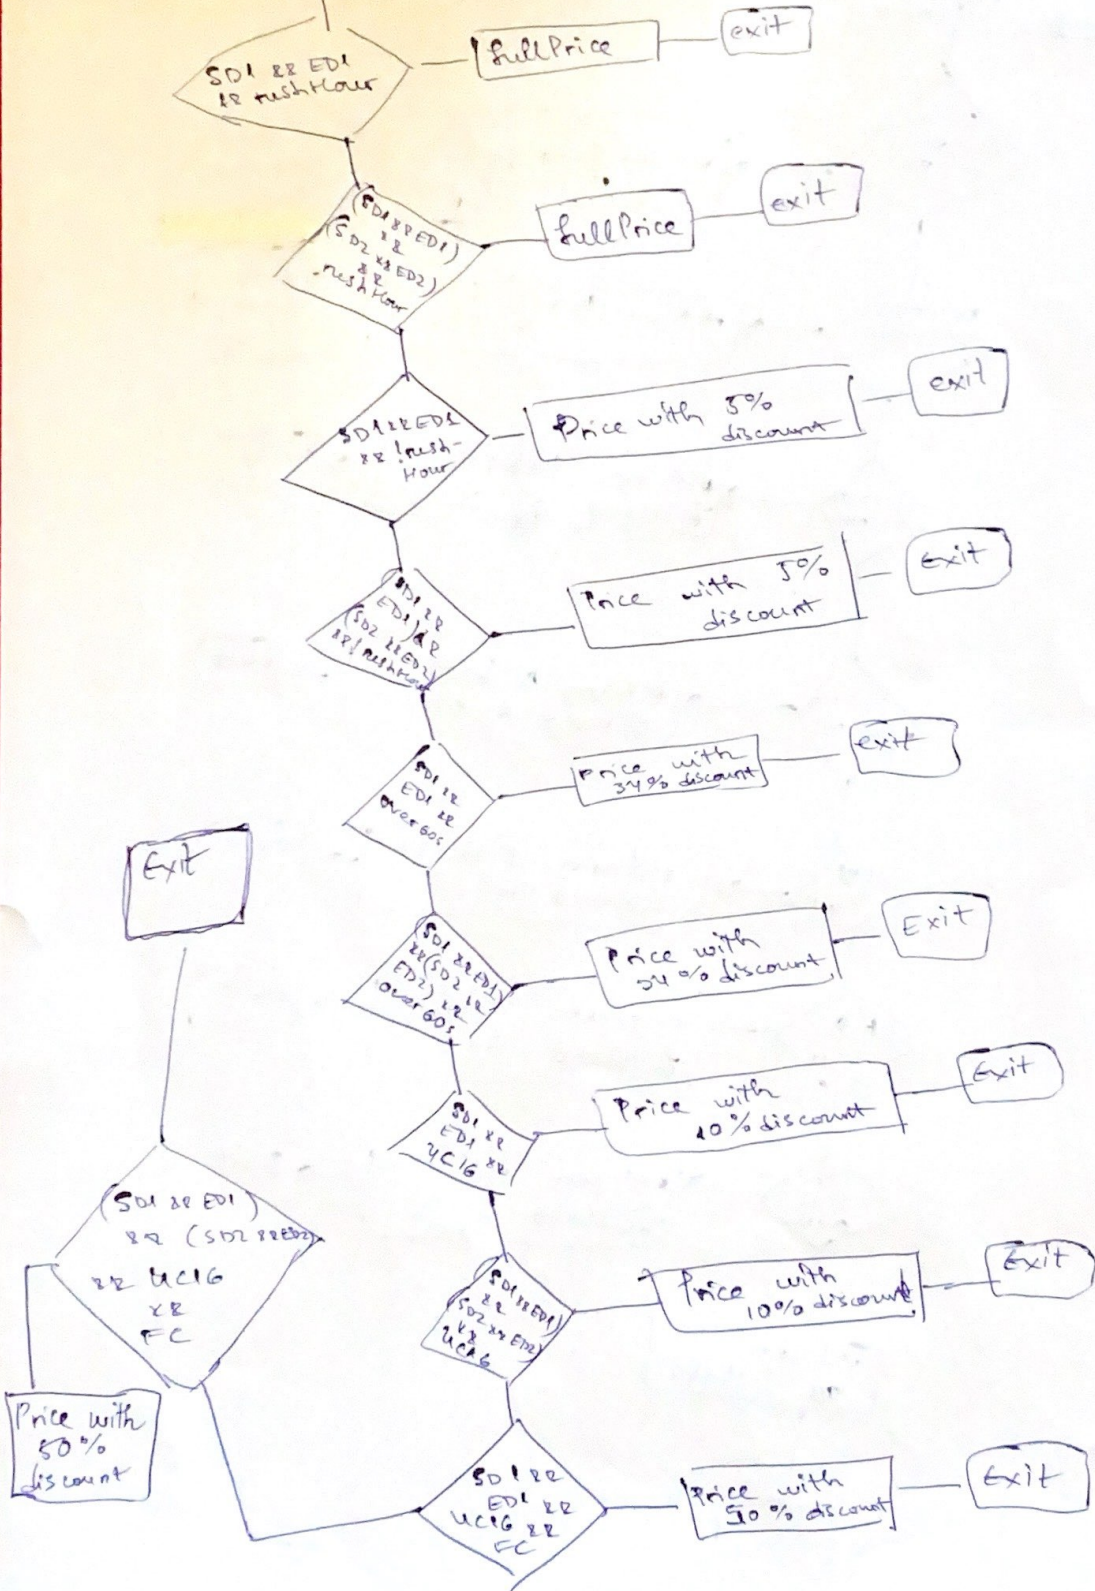 SD1 && ED1
&& rushHour
fullPrice
exit
(SD1 && ED1)
&&
(SD2 && ED2)
&&
rushHour
fullPrice
exit
SD1 && ED1
&& !rush-
Hour
Price with 5%
discount
exit
(SD1 &&
ED1) &&
(SD2 && ED2)
&& !rushHour
Price with 5%
discount
Exit
SD1 &&
ED1 &&
over60s
Price with
34% discount
exit
(SD1 && ED1)
&& (SD2 &&
ED2) &&
over60s
Price with
34% discount
Exit
SD1 &&
ED1 &&
UC16
Price with
10% discount
Exit
(SD1 && ED1)
&&
(SD2 && ED2)
&&
UC16
Price with
10% discount
Exit
SD1 &&
ED1 &&
UC16 &&
FC
Price with
50% discount
Exit
(SD1 && ED1)
&& (SD2 && ED2)
&& UC16
&&
FC
Price with
50%
discount
Exit